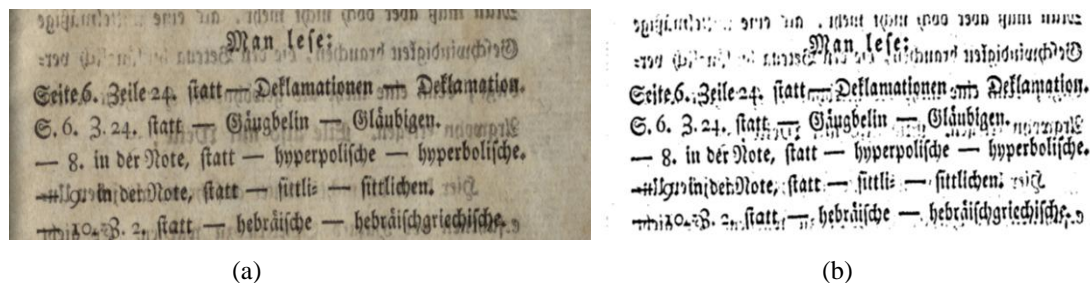 Man lese:
Seite 6. Zeile 24. statt — Deklamationen — Deklamation.
S. 6. Z. 24. statt — Gäugbelin — Gläubigen.
— 8. in der Note, statt — hyperpolische — hyperbolische.
— 9. in der Note, statt — sittli= — sittlichen.
— 10. Z. 2. statt — hebräische — hebräischgriechische.
(a)
Man lese:
Seite 6. Zeile 24. statt — Deklamationen — Deklamation.
S. 6. Z. 24. statt — Gäugbelin — Gläubigen.
— 8. in der Note, statt — hyperpolische — hyperbolische.
— 9. in der Note, statt — sittli= — sittlichen.
— 10. Z. 2. statt — hebräische — hebräischgriechische.
(b)